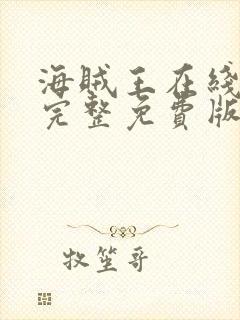 海贼王在綫
完整免費版
牧笙哥